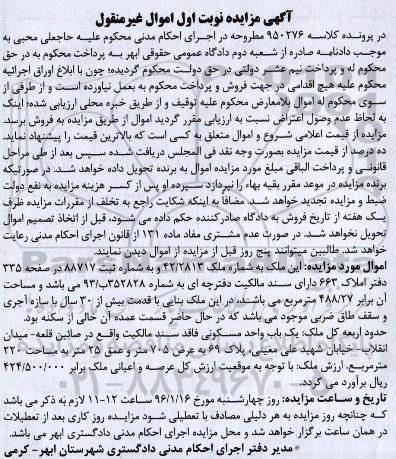 آگهی مزایده نوبت اول اموال غیرمنقول
در پرونده کلاسه ۹۵۰۲۷۶ مطروحه در اجرای احکام مدنی محکوم علیه حاجعلی محبی به
موجب دادنامه صادره از شعبه دوم دادگاه عمومی حقوقی ابهر به پرداخت محکوم به در حق
محکوم له و پرداخت نیم عشر دولتی در حق دولت محکوم گردیده؛ چون با ابلاغ اوراق اجرائیه
محکوم علیه هیچ اقدامی در جهت فروش و پرداخت محکوم به بعمل نیاورده است و از طرفی از
سوی محکوم له اموال بلامعارض محکوم علیه توقیف و از طریق خبره محلی ارزیابی شده؛ اینک
به لحاظ عدم وصول اعتراض نسبت به ارزیابی مقرر گردید اموال از طریق مزایده به فروش برسد.
مزایده از قیمت اعلامی شروع و اموال متعلق به کسی است که بالاترین قیمت را پیشنهاد نماید.
ده درصد از قیمت مزایده بصورت وجه نقد فی المجلس دریافت شده سپس بعد از طی مراحل
قانونی و پرداخت الباقی مبلغ مورد مزایده اموال به برنده تحویل داده خواهد شد. در صورتیکه
برنده مزایده در موعد مقرر بقیه بهاء را نپردازد سپرده او پس از کسر هزینه مزایده به نفع دولت
ضبط و مزایده تجدید خواهد شد. مضافا به اینکه شکایت راجع به تخلف از مقررات مزایده ظرف
یک هفته از تاریخ فروش به دادگاه صادرکننده حکم داده می شود، قبل از اتخاذ تصمیم اموال
تحویل نخواهد شد. در صورت عدم مشتری مفاد ماده ۱۳۱ از قانون اجرای احکام مدنی رعایت
خواهد شد. طالبین میتوانند پنج روز قبل از مزایده از اموال دیدن نمایند.
اموال مورد مزایده: این ملک به شماره ملک ۴۲/۲۸۱۳ و به شماره ثبت ۸۸۷۱۷ در صفحه ۳۳۵
دفتر املاک ۶۶۳ دارای سند مالکیت دفترچه ای به شماره ۳۵۲۸۲۸ب/۹۳ می باشد و مساحت
آن برابر ۴۸۸/۲۷ مترمربع می باشد، در این ملک بنایی با قدمت بیش از ۳۰ سال با سازه آجری
و سقف طاق ضربی موجود می باشد که در حال حاضر قسمت عمده آن خالی از سکنه بود.
حدود اربعه کل ملک: یک باب واحد مسکونی فاقد سند مالکیت واقع در صائین قلعه- میدان
انقلاب- خیابان شهید علی معینی، پلاک ۶۹ به عرض ۷۰۵ متر و عمق ۲۵ متر به مساحت ۲۲۰
مترمربع. ارزش ملک: با توجه به موقعیت ارزش کل عرصه و اعیانی ملک برابر ۴۲۴/۵۰۰/۰۰۰
ریال برآورد می گردد.
تاریخ و ساعت مزایده: روز چهارشنبه مورخ ۹۶/۱/۱۶ ساعت ۱۲-۱۱ لازم به ذکر می باشد
که چنانچه روز مزایده به هر دلیلی مصادف با تعطیلی شود مزایده روز کاری بعد از تعطیلات
در همان ساعت برگزار خواهد شد و محل مزایده اجرای احکام مدنی دادگستری ابهر می باشد.
مدیر دفتر اجرای احکام مدنی دادگستری شهرستان ابهر- کرمی